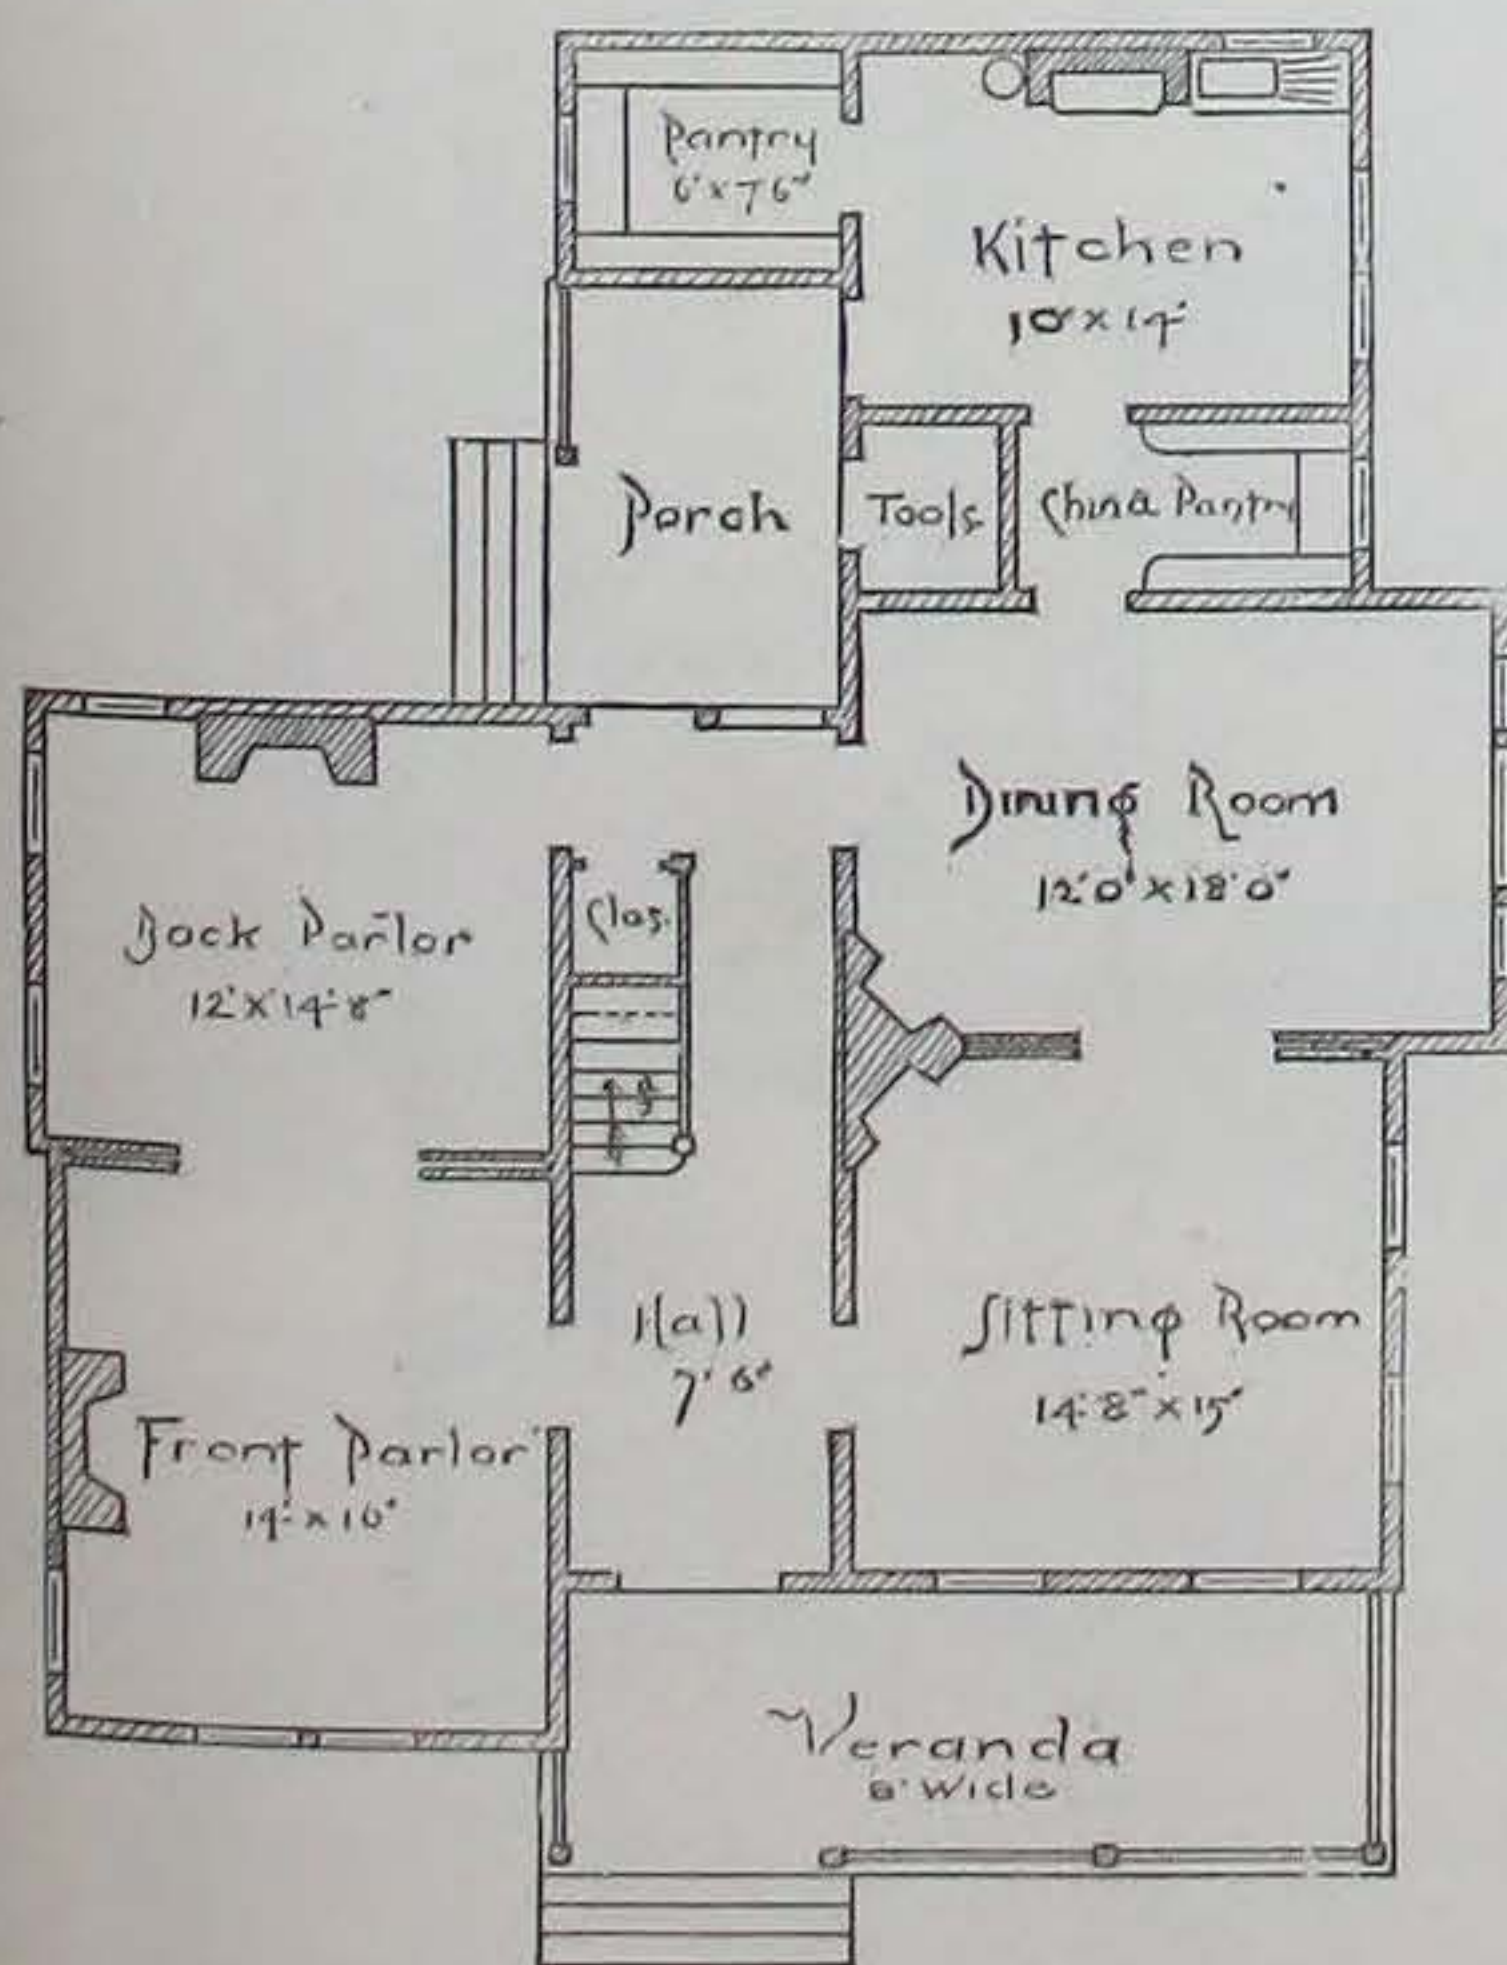 Pantry
6' x 7'6"
Kitchen
10' x 14'
Porch
Tools
China Pantry
Dining Room
12'0" x 18'0"
Back Parlor
12' x 14'8"
Clos.
Hall
7'6"
Sitting Room
14'8" x 15'
Front Parlor
14' x 16'
Veranda
8' Wide